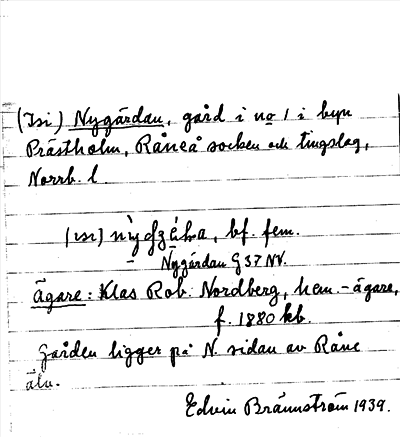 (Isi) Nygårdan, gård i no 1 i byn
Prästholm, Råneå socken och tingslag,
Norrb. l.
bf. fem.
Nygårdan G 37 NV.
Ägare: Klas Rob. Nordberg, hem.-ägare,
f. 1880 kb.
Gården ligger på N. sidan av Råne
älv.
Edvin Brännström 1939.